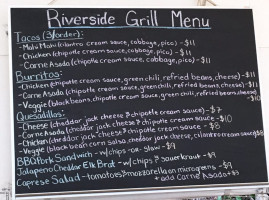 Riverside Grill Menu
Tacos (3/order):
- Mahi Mahi (cilantro cream sauce, cabbage, pico) - $11
- Chicken (chipotle cream sauce, cabbage, pico) - $11
- Carne Asada (chipotle cream sauce, cabbage, pico) - $11
Burritos:
- Chicken (chipotle cream sauce, green chili, refried beans, cheese) - $11
- Carne Asada (chipotle cream sauce, green chili, refried beans, cheese) - $11
- Veggie (black beans, chipotle cream sauce, green chili, refried beans, cheese) - $10
Quesadillas:
- Cheese (cheddar jack cheese & chipotle cream sauce) - $7
- Carne Asada (cheddar jack cheese & chipotle cream sauce) - $10
- Chicken (cheddar jack cheese & chipotle cream sauce) - $8
- Veggie (black bean corn salsa, cheddar jack cheese, cilantro cream sauce) $8
BBQ Pork Sandwich - w/chips or slaw - $9
Jalapeno Cheddar Elk Brat - w/chips & sauerkraut - $9
Caprese Salad - tomatoes & mozzarella on microgreens - $9
+ add Carne Asada + $3